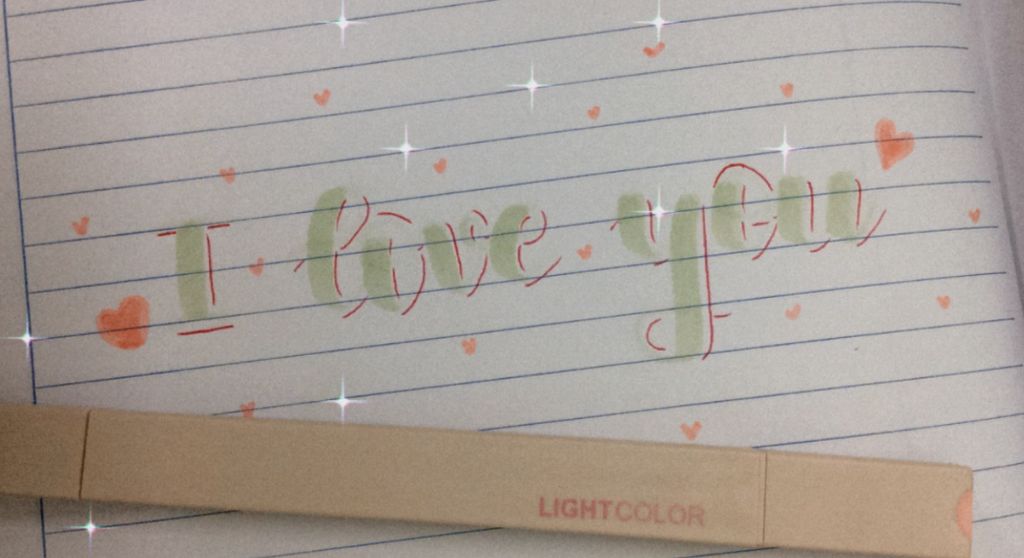 I love you
LIGHTCOLOR